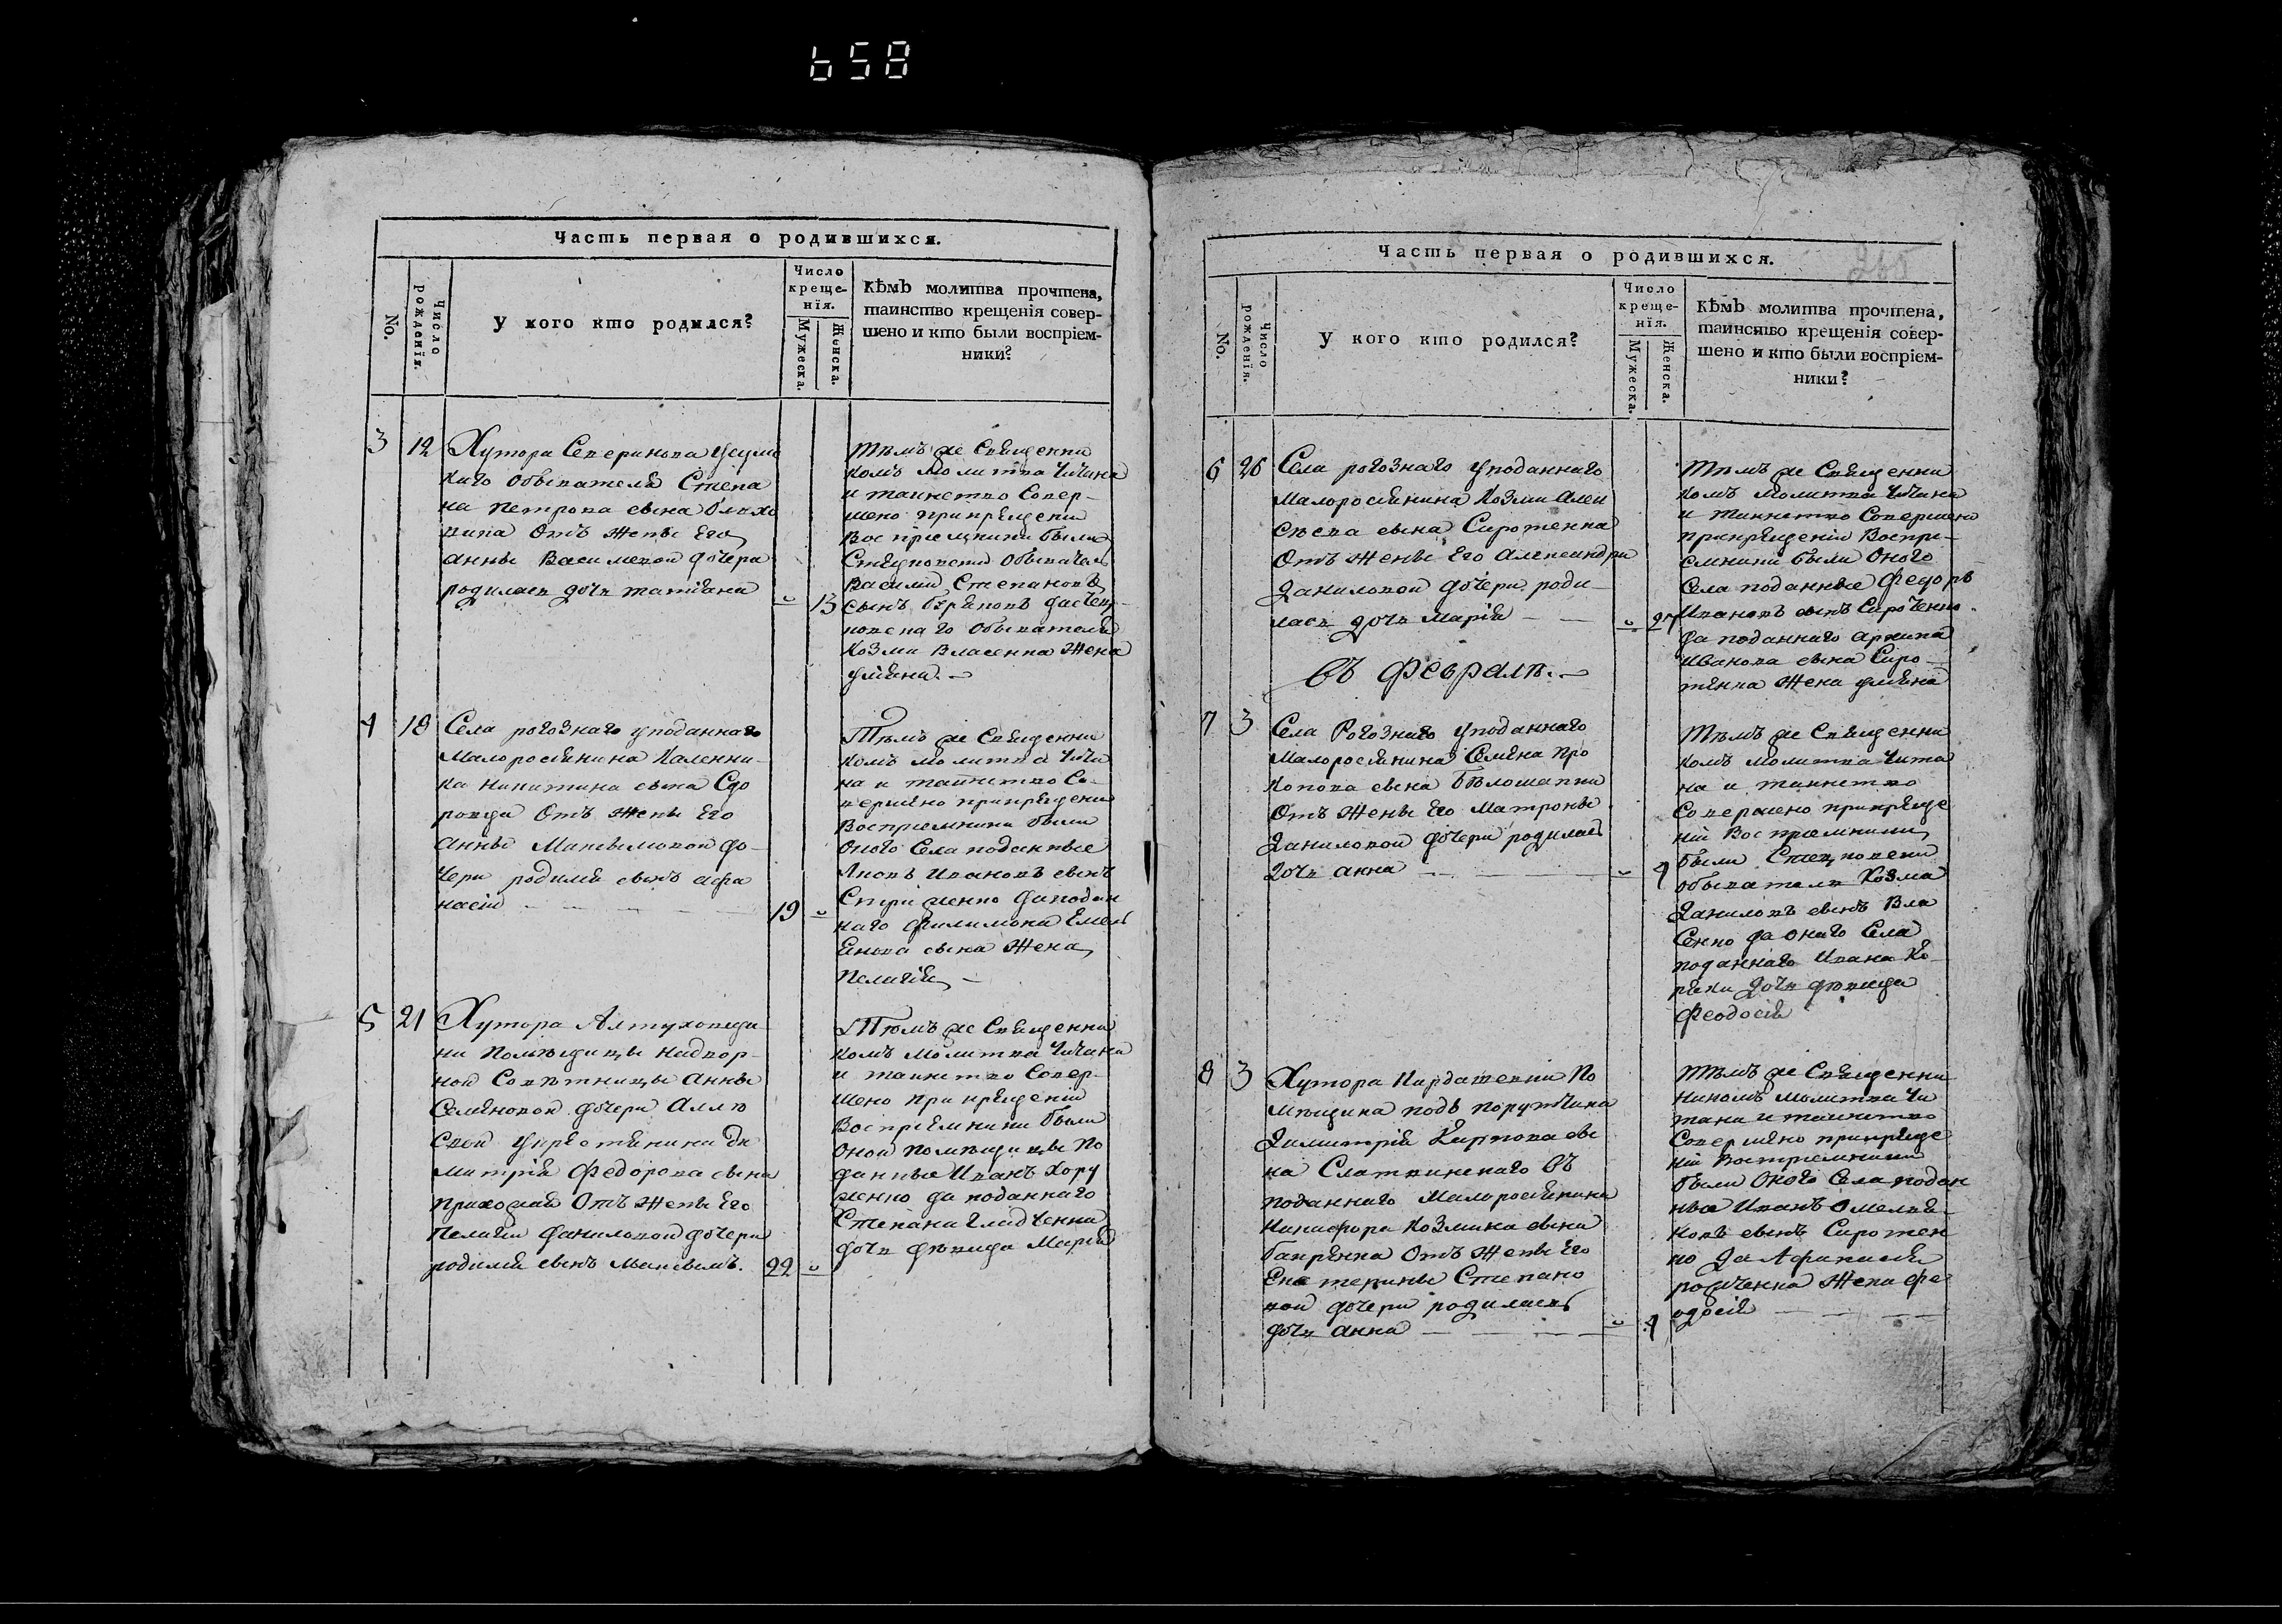 658
Часть первая о родившихся.
No.
Число рожденія.
У кого кто родился?
Число
креще-
нія.
Мужеска.
Женска.
Кѣмъ молитва прочтена,
таинство крещенія совер-
шено и кто были воспріем-
ники?
3 12 Хутора Северинова
обывателя Степа
на Петрова сына
от жены Его
анны Васильевой дочера
родилась дочь татіана
13
Тѣмъ же Священни
комъ молитва читана
и таинство Совер-
шено прикрещении
Воспріемники были
обыватель
Василий Степановъ
сынъ да
обывателя
Козми Власенка жена
уліяна
4 18 Села рогознаго уподаннаго
Малоросіянина Каленни-
ка Никитина сына Сдо
ровца Отъ жены Его
анны Максимовой до-
чери родился сынъ афа
насий
19
Тѣмъ же Священни
комъ молитва чита
на и таинство Со-
вершено прикрещении
Воспріемники были
оного Села поданные
Яковъ Ивановъ сынъ
да подан
наго филимона Емел
янова сына жена
Пелагія
5 21 Хутора Алтуховщи
ни Помѣщицы Надвор-
ной Совѣтницы Анны
Семяновой дочери
Ди
митрія Федорова сына
Отъ жены Его
Пелагии Даниловой дочери
родился сынъ Максимъ.
22
Тѣмъ же Священни
комъ молитва читана
и таинство Совер-
шено при крещении
Воспріемники были
оной помѣщицы по
данные Иванъ Хору
женко да поданнаго
Степана Гладченка
дочь дѣвица Марія
Часть первая о родившихся.
260
No.
Число рожденія.
У кого кто родился?
Число
креще-
нія.
Мужеска.
Женска.
Кѣмъ молитва прочтена,
таинство крещенія совер-
шено и кто были воспріем-
ники?
6 26 Села рогознаго уподаннаго
малоросіянина Козми Алек
сѣева сына Сиротенка
Отъ жены Его Александри
Даниловой дочери роди-
лась дочь Марія
27
Тѣмъ же Священни
комъ молитва читана
и таинство Совершено
прикрещении Воспри-
емники были Оного
Села поданные Федоръ
Ивановъ сынъ Сиротенко
да поданнаго архипа
Иванова сына Сиро-
тенка жена уліяна
Въ Февралѣ.
7 3 Села Рогознаго уподаннаго
Малоросіянина Семена Про
копова сына Бѣлошапки
Отъ жены Его Матроны
Даниловой дочери родилась
дочь анна
4
Тѣмъ же Священни
комъ молитва чита
на и таинство
Совершено прикреще
ніи Воспріемники
были
обыватель Козма
Даниловъ сынъ Вла
сенко да онаго Села
поданнаго Ивана Ко-
ряки дочь дѣвица
Феодосія
8 3 Хутора По
мѣщика подъ поручика
Димитрія Карпова сы
на Слатвинскаго въ
поданнаго Малоросіянина
Никифора Козмина сына
Отъ жены Его
Екатерины Степано
вой дочери родилась
дочь анна
4
Тѣмъ же Священни
никомъ молитва чи
тана и таинство
Совершено прикреще
ніи Воспріемники
были Оного Села подан
ные Иванъ Омелья-
новъ сынъ Сиротен
ко да Афанасия
жена Фе
одосія